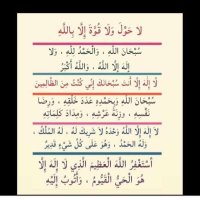 لَا حَوْلَ وَلَا قُوَّةَ إِلَّا بِاللَّهِ
سُبْحَانَ اللَّهِ ، وَالْحَمْدُ لِلَّهِ ، وَلَا
إِلَهَ إِلَّا اللَّهُ ، وَاللَّهُ أَكْبَرُ
لَا إِلَهَ إِلَّا أَنْتَ سُبْحَانَكَ إِنِّي كُنْتُ مِنَ الظَّالِمِينَ
سُبْحَانَ اللَّهِ وَبِحَمْدِهِ عَدَدَ خَلْقِهِ ، وَرِضَا
نَفْسِهِ ، وَزِنَةَ عَرْشِهِ ، وَمِدَادَ كَلِمَاتِهِ
لَا إِلَهَ إِلَّا اللَّهُ وَحْدَهُ لَا شَرِيكَ لَهُ ، لَهُ الْمُلْكُ
، وَلَهُ الْحَمْدُ ، وَهُوَ عَلَى كُلِّ شَيْءٍ قَدِيرٌ
أَسْتَغْفِرُ اللَّهَ الْعَظِيمَ الَّذِي لَا إِلَهَ إِلَّا
هُوَ الْحَيُّ الْقَيُّومُ ، وَأَتُوبُ إِلَيْهِ